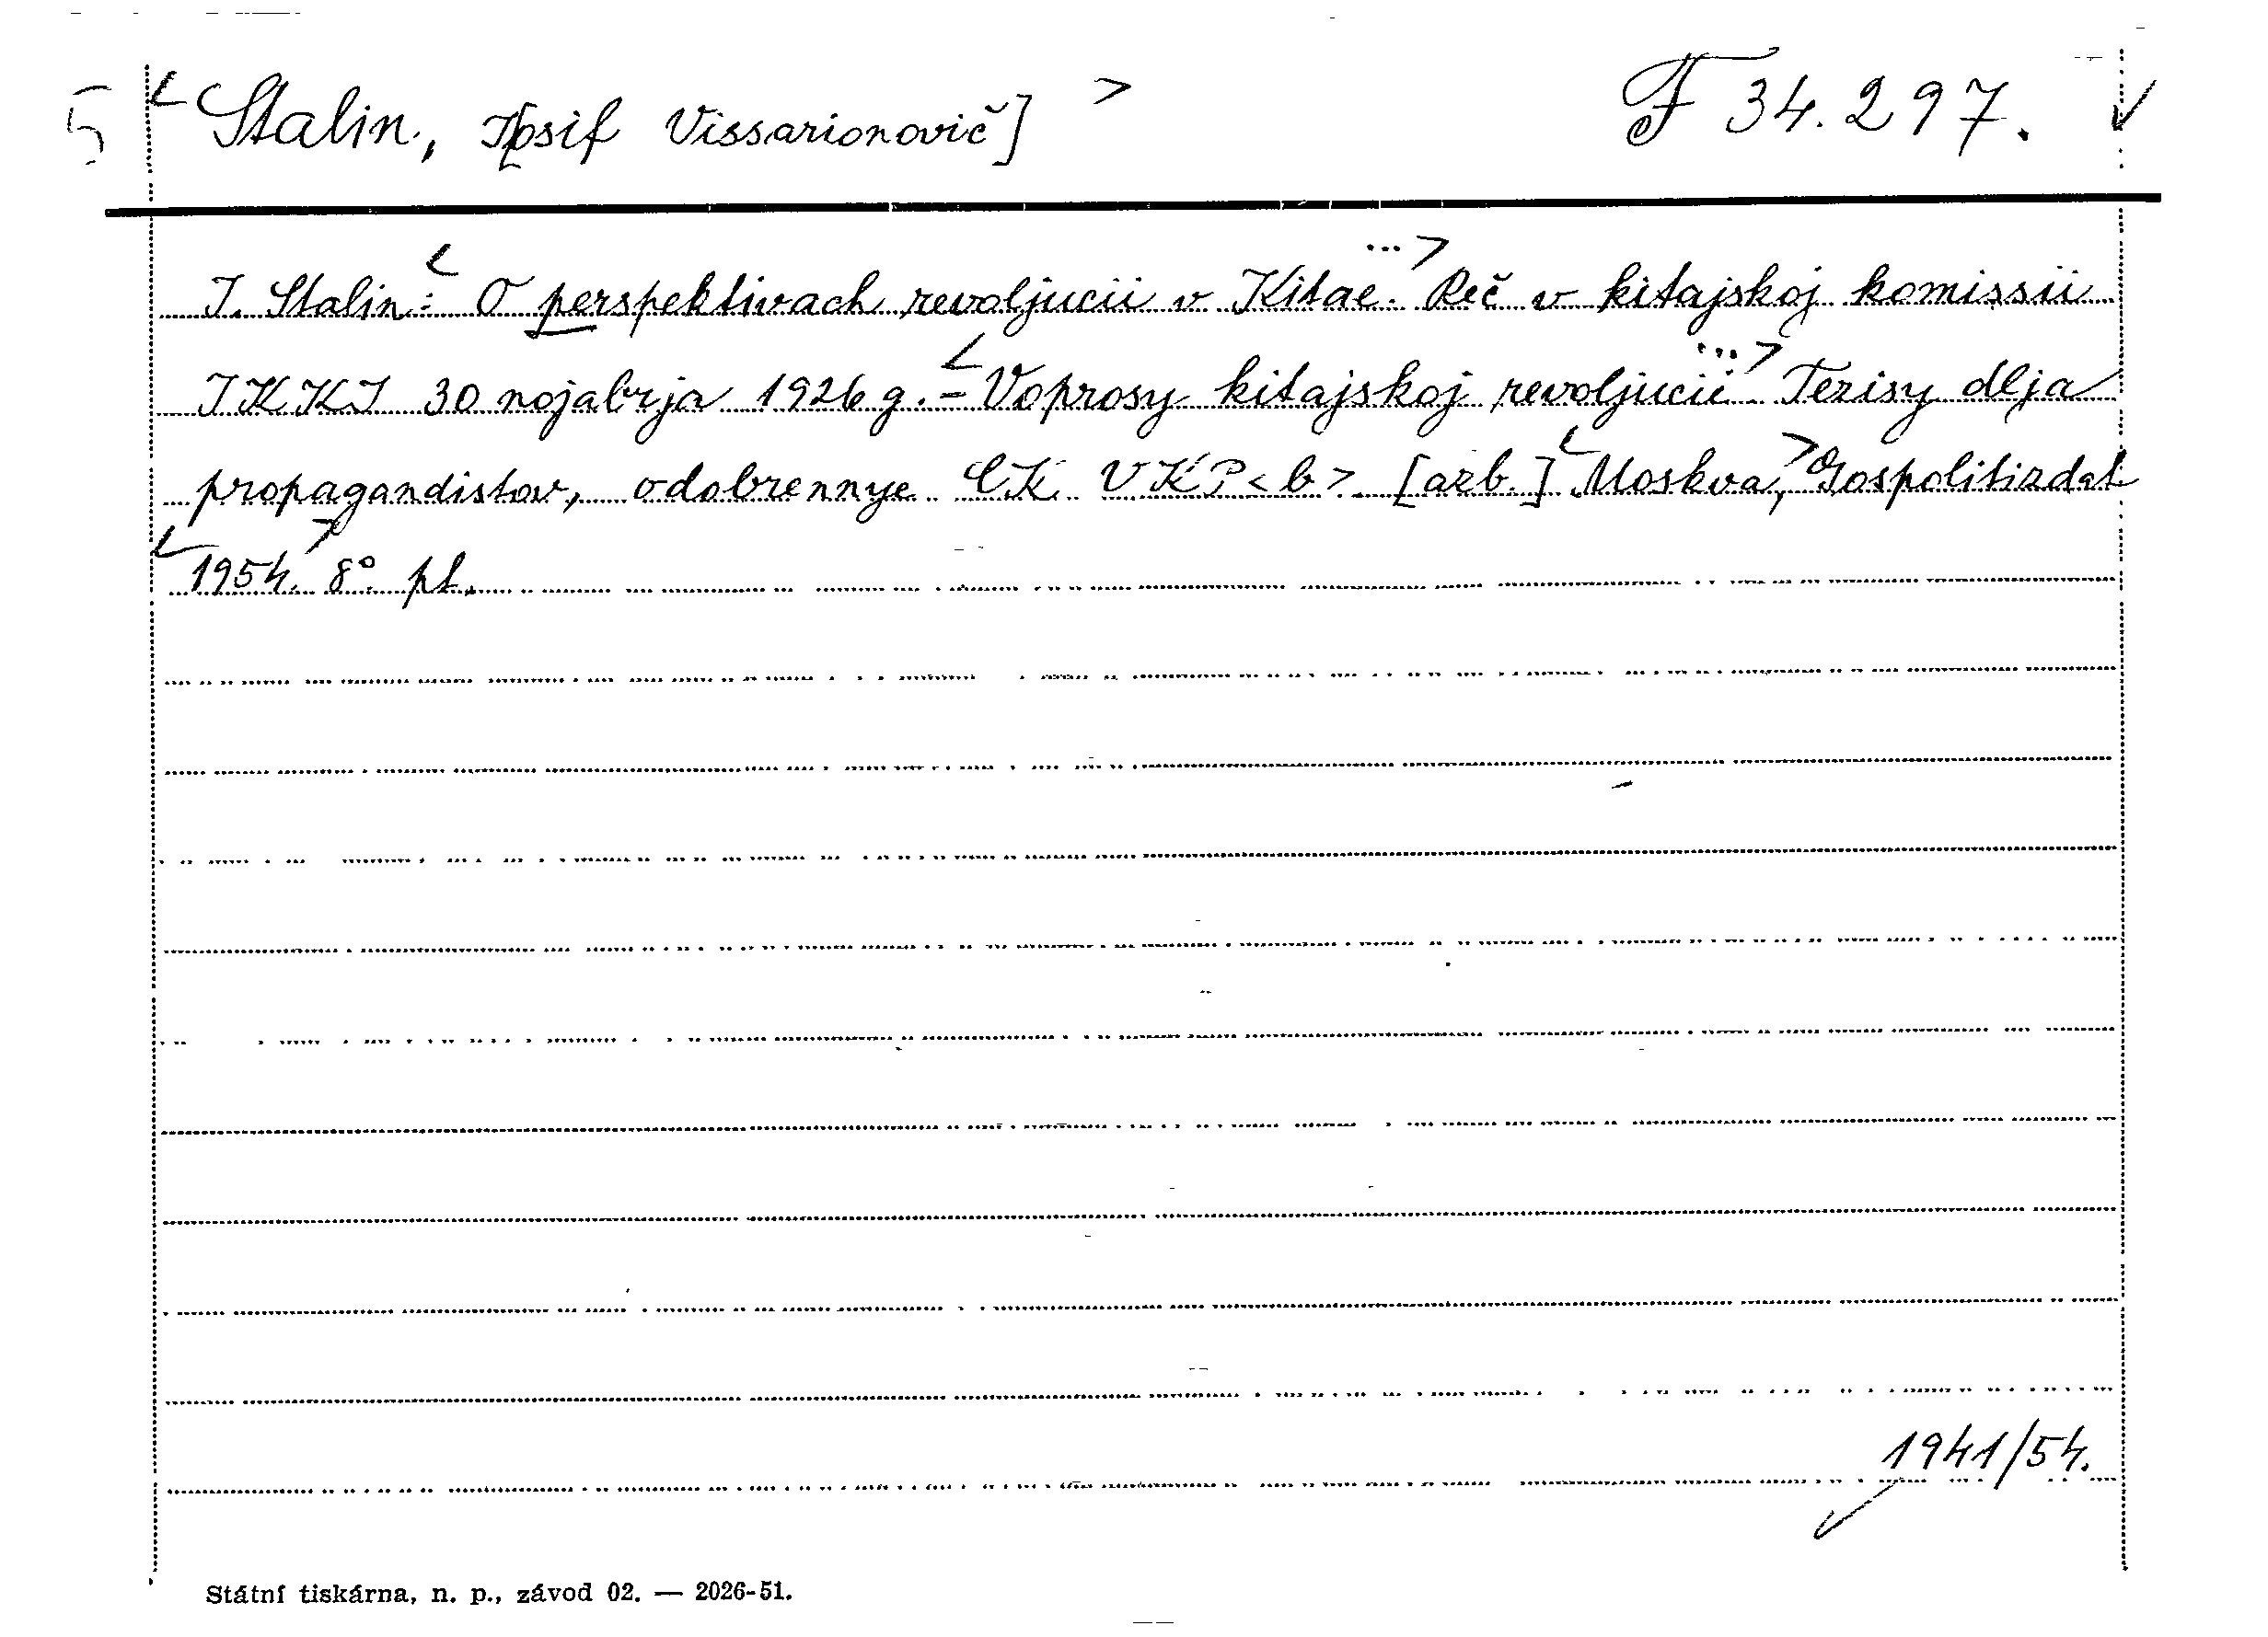 5 < Stalin, I[osif Vissarionovič] > F 34.297. ✓
I. Stalin: < O perspektivach revoljucii v Kitae. ...> Reč v kitajskoj komissii
IKKI 30 nojabrja 1926 g. - < Voprosy kitajskoj revoljucii ...> Tezisy dlja
propagandistov, odobrennye CK VKP<b>. [azb.] < Moskva, > Gospolitizdat
< 1954. > 8° pl.
1941/54.
Státní tiskárna, n. p., závod 02. — 2026-51.